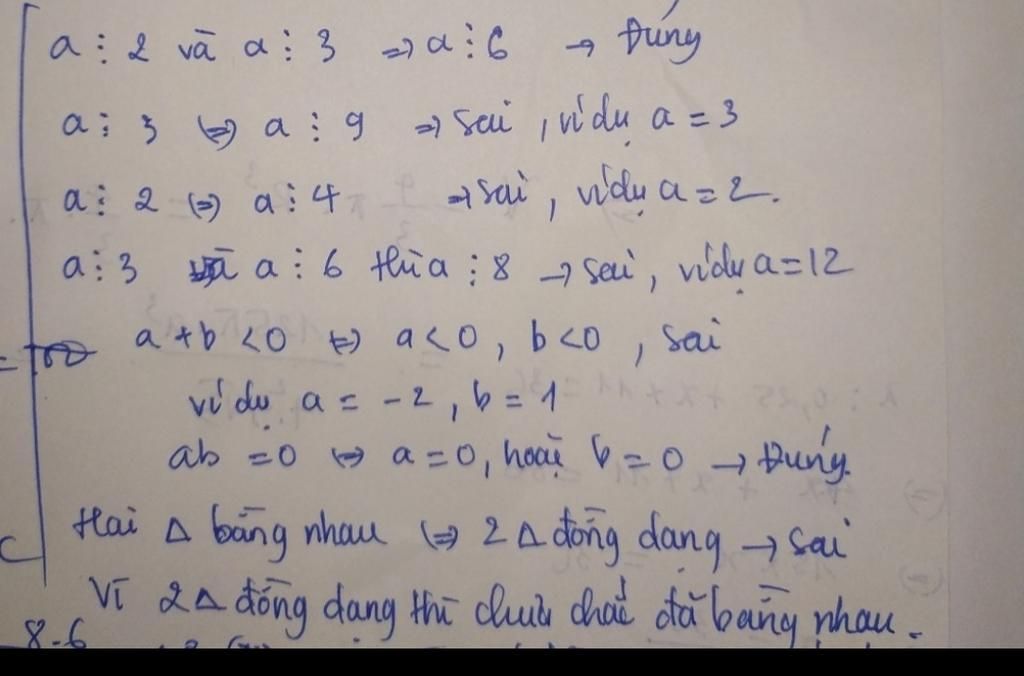 a ⋮ 2 và a ⋮ 3 => a ⋮ 6 → Đúng
a ⋮ 3 <=> a ⋮ 9 => sai, ví dụ a = 3
a ⋮ 2 <=> a ⋮ 4 => sai, ví dụ a = 2.
a ⋮ 3 và a ⋮ 6 thì a ⋮ 8 → sai, ví dụ a = 12
a + b < 0 <=> a < 0, b < 0, sai
ví dụ a = -2, b = 1
ab = 0 <=> a = 0, hoặc b = 0 → Đúng.
Hai Δ bằng nhau <=> 2 Δ đồng dạng → sai
Vì 2 Δ đồng dạng thì chưa chắc đã bằng nhau.
8-6